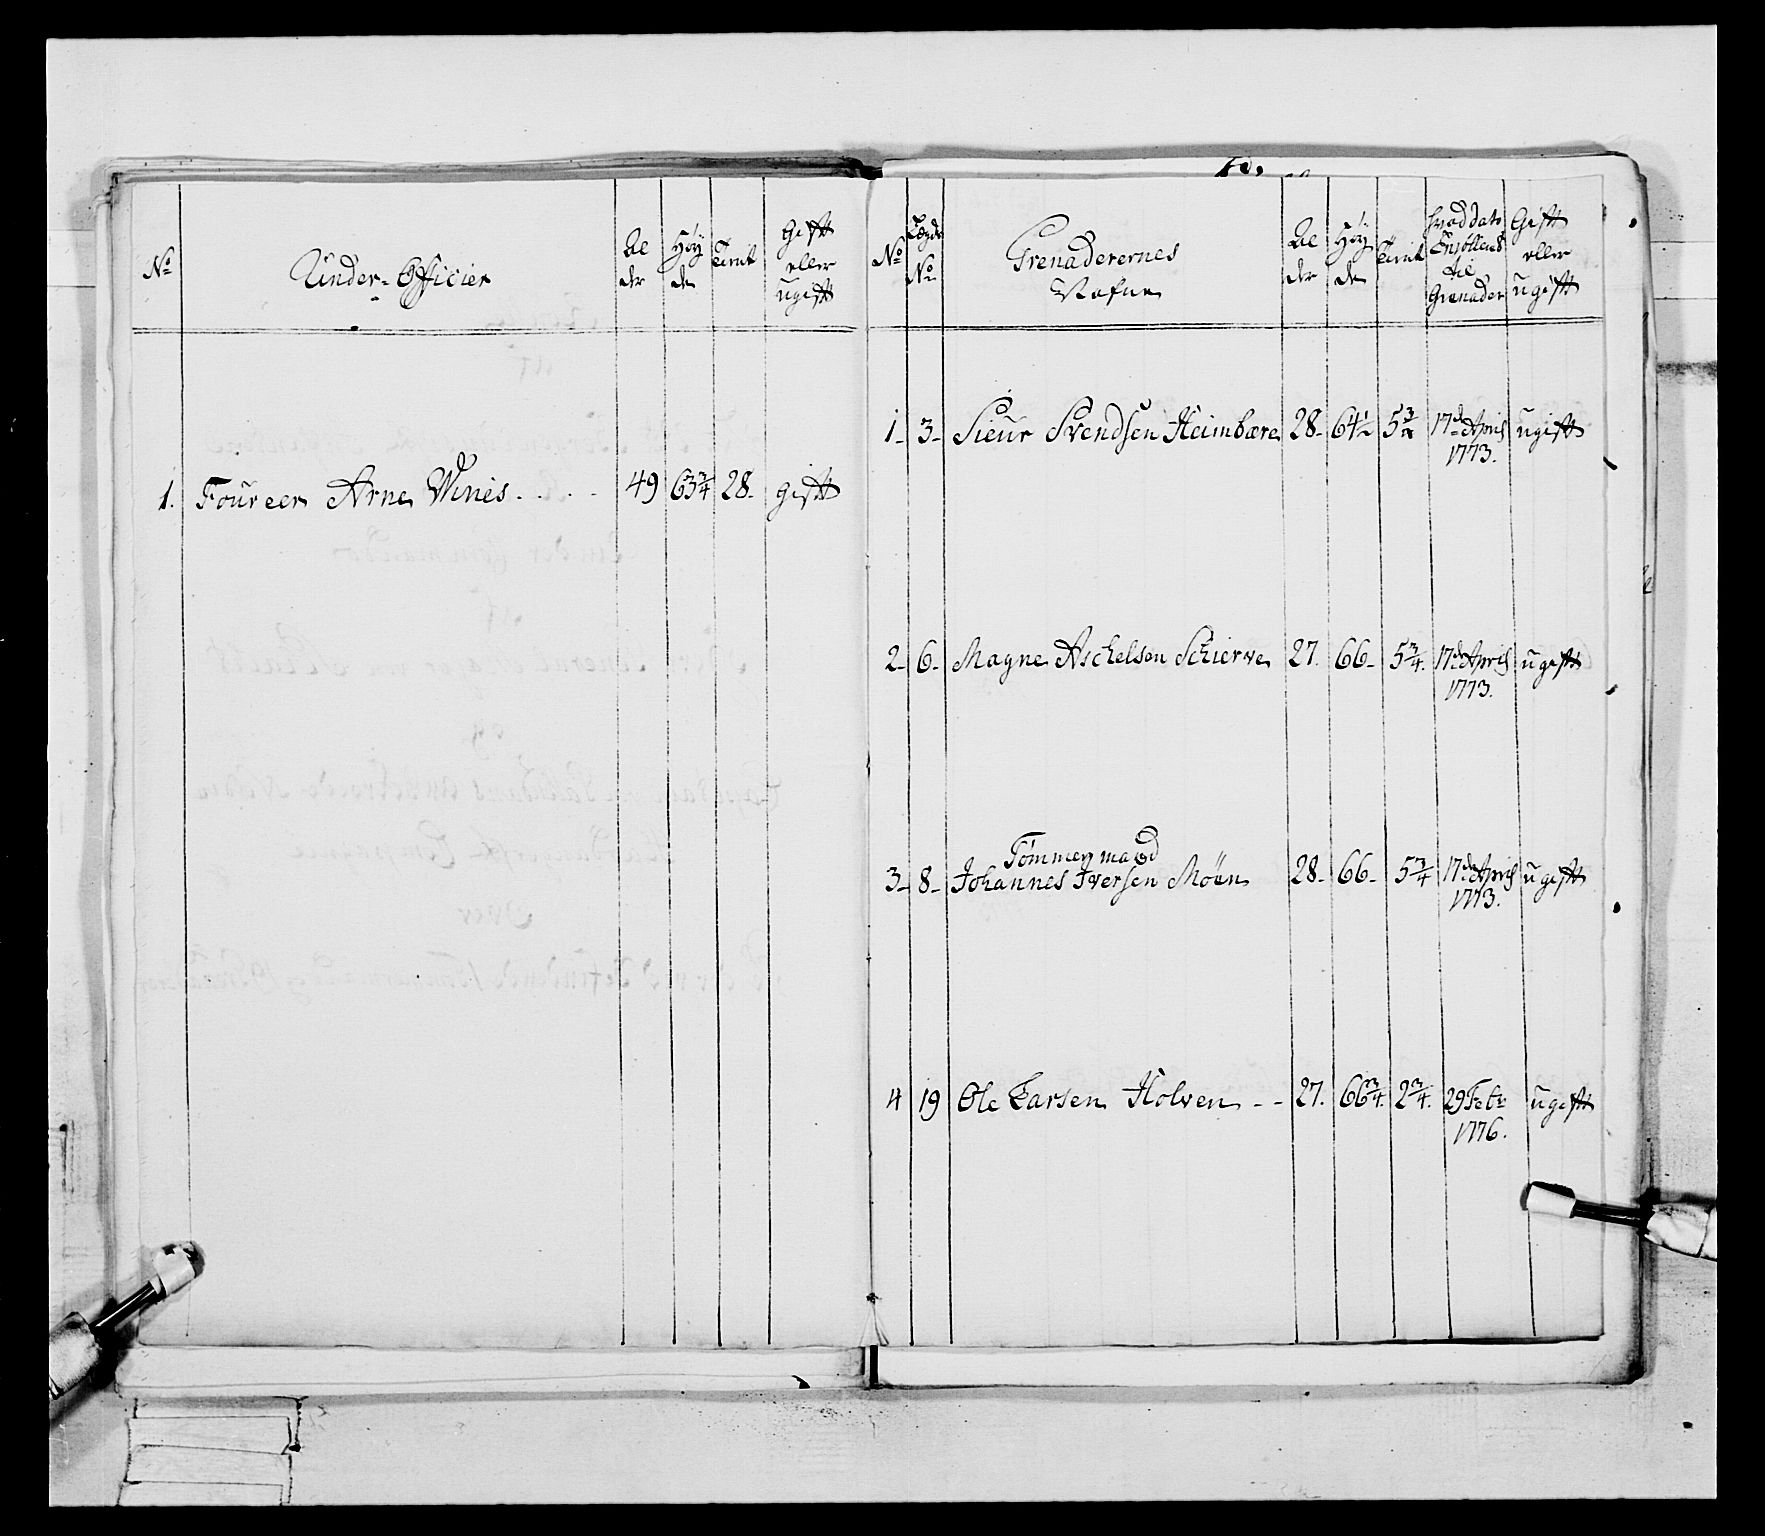 No | Under-Officier | Alder | Høyde | Tienst | Gift eller ugift
1. | Foureer Arne Wines . . . . | 49 | 63¾ | 28. | gift
No | Lægds No | Grenaderernes Nafne | Alder | Høyde | Tienst | hvad dato Enrollerit til Grenader | Gift eller ugift
1 | 3 | Sieur Svendsen Heimbære | 28 | 64½ | 5¾ | 17de April 1773. | ugift
2 | 6 | Magne Aschelsen Schierve | 27. | 66 | 5¾. | 17de April 1773. | ugift
Tømmermand
3 | 8 | Johannes Iversen Moen | 28 | 66 | 5¾ | 17de April 1773. | ugift
4 | 19 | Ole Larsen Holven - - | 27. | 66¾. | 2¾. | 29 Febr 1776. | ugift